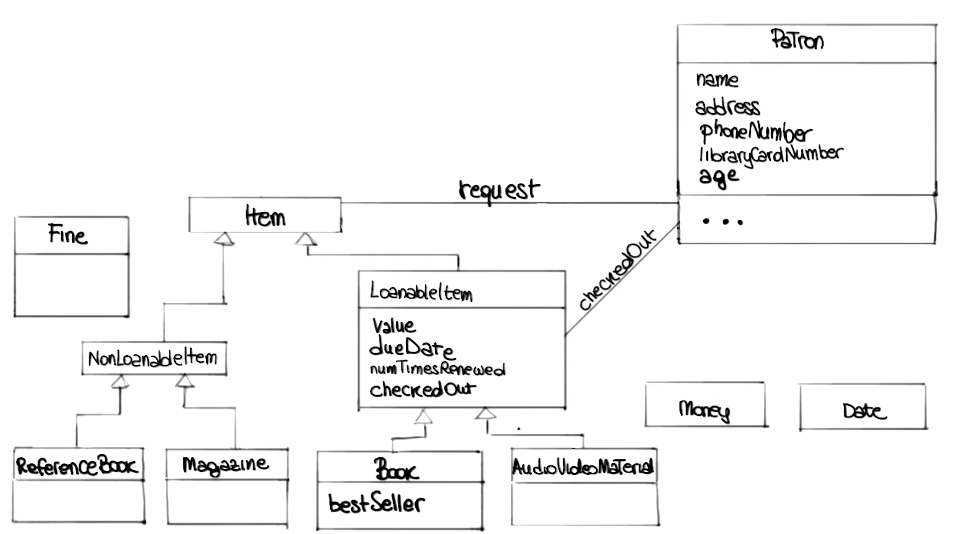 Patron
name
address
phoneNumber
libraryCardNumber
age
...
request
Item
Fine
checkedOut
LoanableItem
value
dueDate
numTimesRenewed
checkedOut
NonLoanableItem
Money
Date
ReferenceBook
Magazine
Book
bestSeller
AudioVideoMaterial